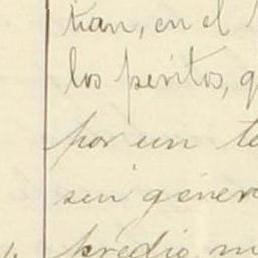 tian, en el
los peritos, q
por un te
sin géner
predio, m